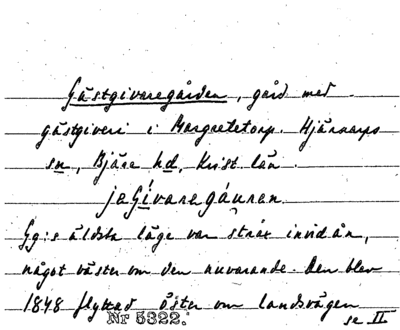 Gästgivaregården, gård med
gästgiveri i Margretetorp. Hjärnarps
sn, Bjäre hd, Krist län.
jeGivaregáuren
Gg:s äldsta läge var strax invid ån,
något väster om den nuvarande. Den blev
1848 flyttad öster om landsvägen
se II
Nr 5322.